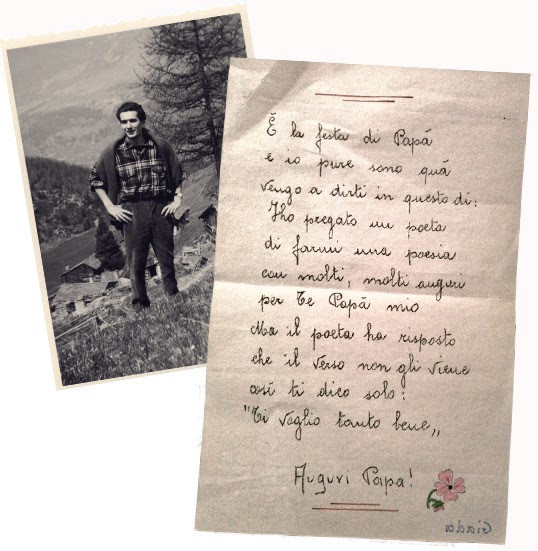 È la festa di Papá
e io pure sono quá
vengo a dirti in questo dí:
Iho pregato un poeta
di farmi una poesia
con molti, molti auguri
per Te Papá mio
Ma il poeta ha risposto
che il verso non gli viene
así ti dico solo:
"Ti voglio tanto bene„
Auguri Papa!
Giada